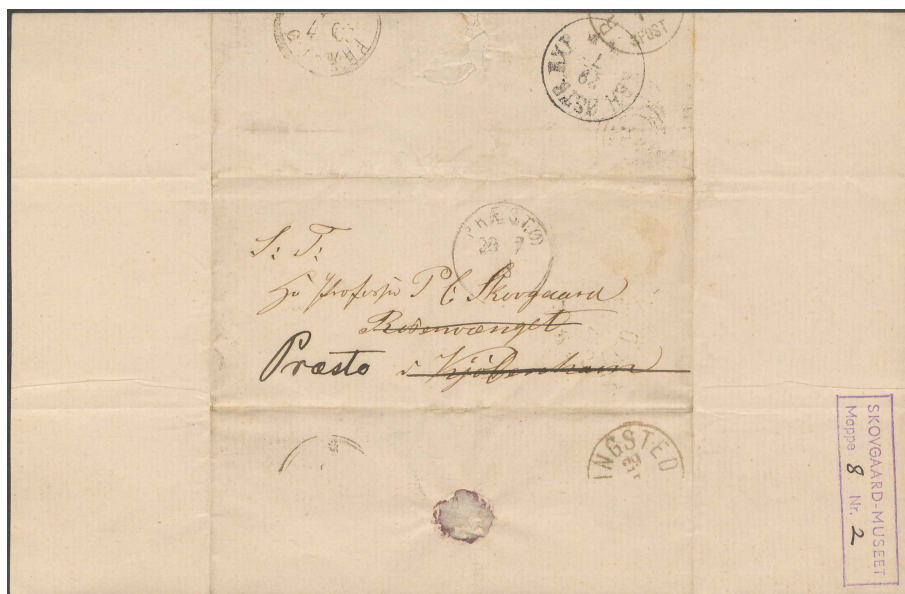 PRÆ
KBH. ØSTR. EXP.
29
7
SPOST
PRÆSTØ
28 7
S: T:
Hr Professor P C Skovgaard
Rosenvænget
Præsto v Kjöbenhavn
INGSTED
29
SKOVGAARD-MUSEET
Mappe 8 Nr. 2